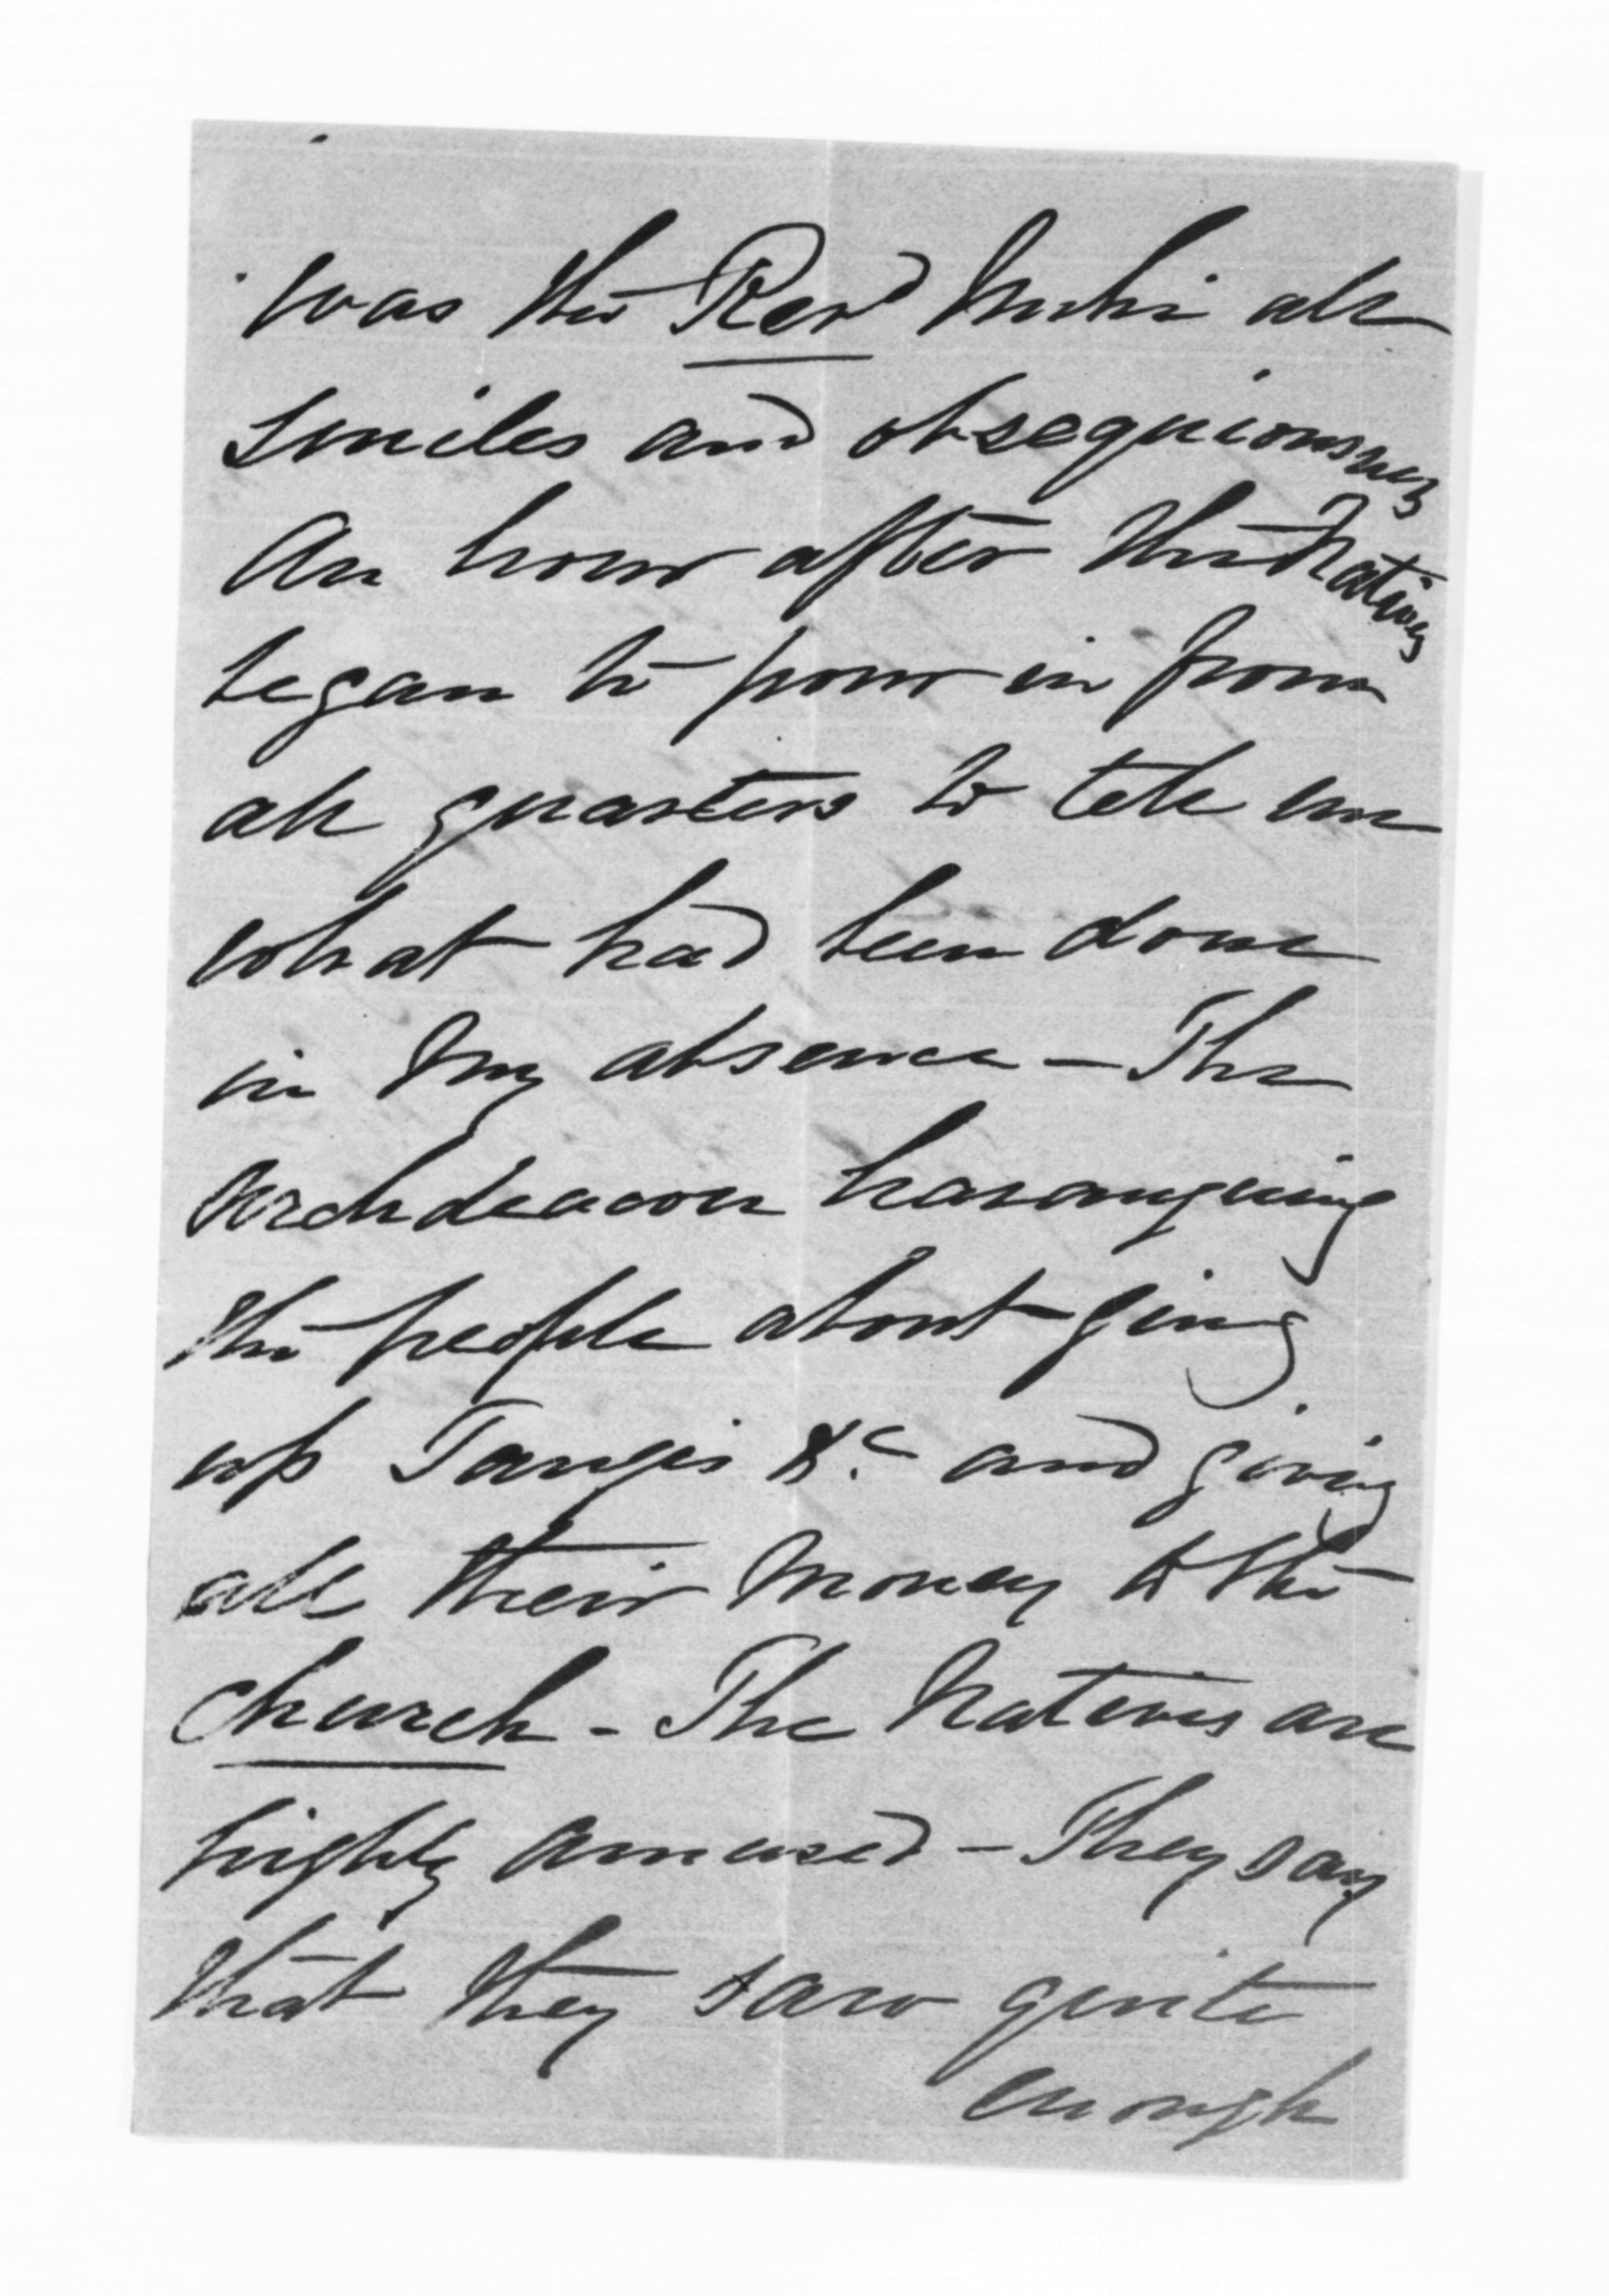 was the Revd Mohi all
smiles and obsequiousness
An hour after the Natives
began to pour in from
all quarters to tell me
what had been done
in my absence - The
Archdeacon haranguing
the people about giving
up Tangis &c. and giving
all their money to the
Church - The Natives are
highly amused - They say
that they saw quite
enough